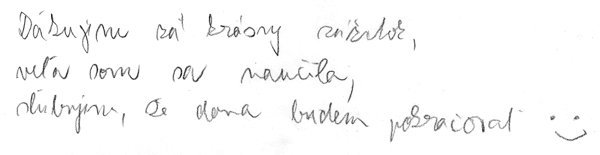 Ďakujem za krásny zážitok,
veľa som sa naučila,
sľubujem, že doma budem pokračovať :)